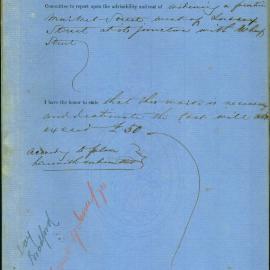 Committee to report upon the advisability and cost of widening a portion
Market Street west of Sussex
Street at its junction with Wharf
Street
I have the honor to state that this work is necessary
and estimate the cost will not
exceed £50
According to plan
herewith submitted